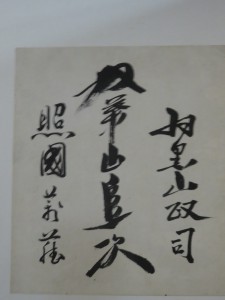 羽黒山政司
双葉山定次
照國萬藏